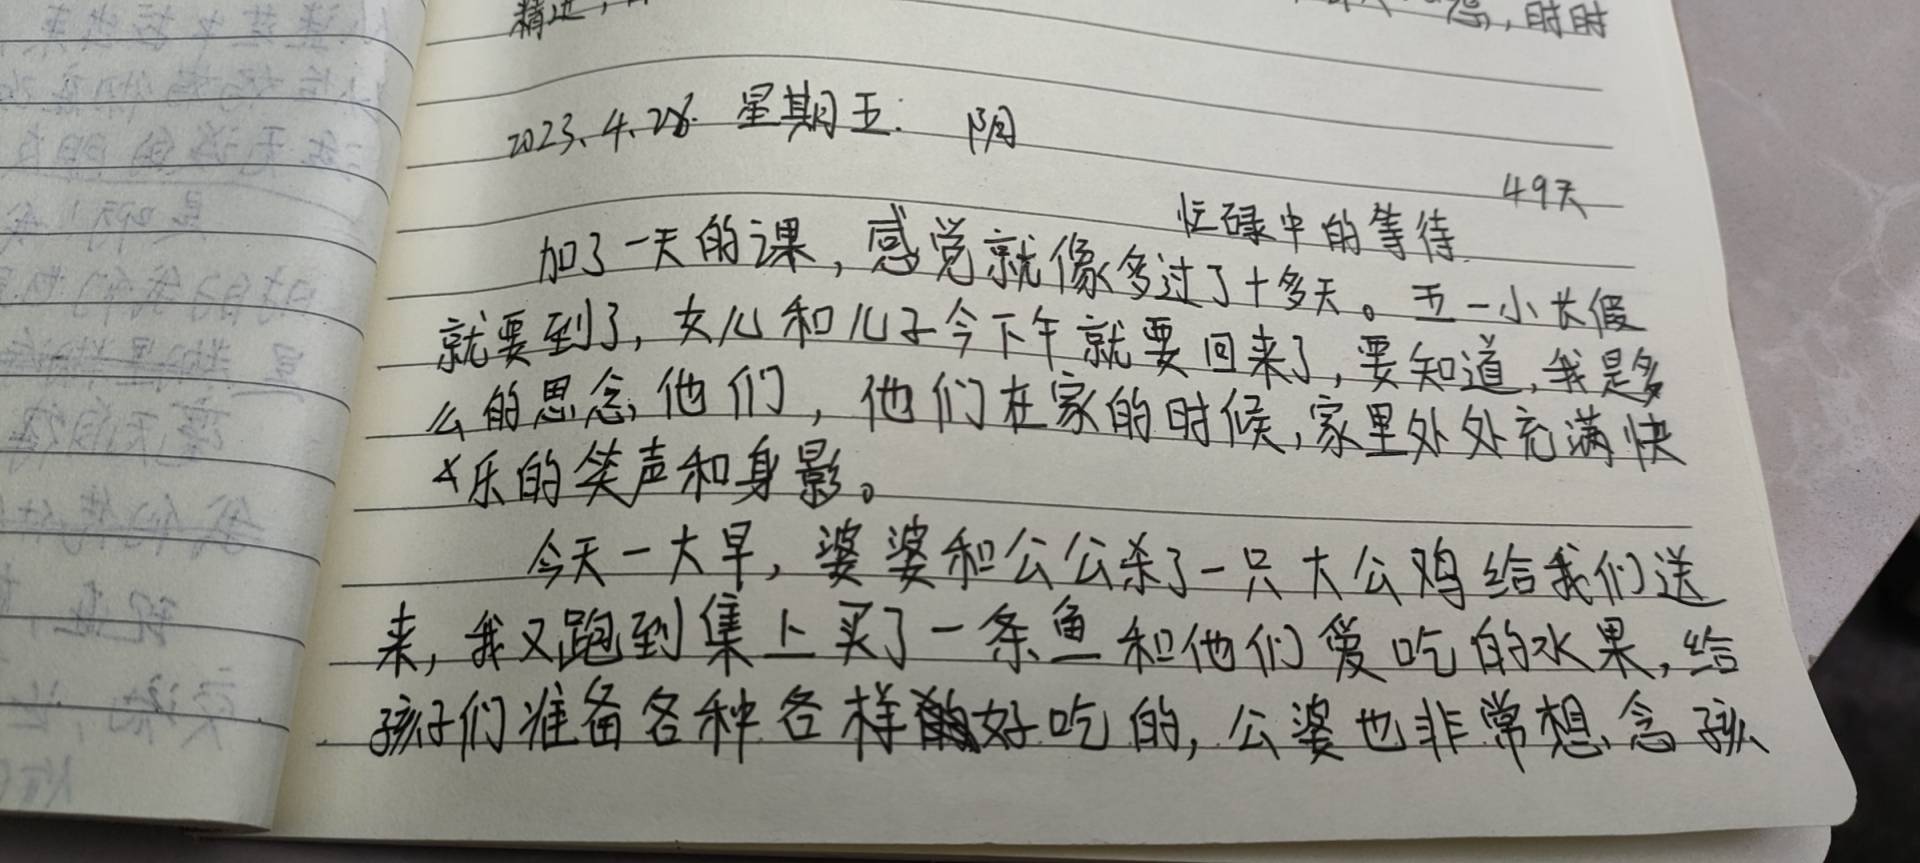 精进,
,时时
2023.4.28. 星期五. 阴
49天
忙碌中的等待
加了一天的课,感觉就像多过了十多天。五一小长假
就要到了,女儿和儿子今下午就要回来了,要知道,我是多
么的思念他们,他们在家的时候,家里处处充满快
乐的笑声和身影。
今天一大早,婆婆和公公杀了一只大公鸡给我们送
来,我又跑到集上买了一条鱼和他们爱吃的水果,给
孩子们准备各种各样的好吃的,公婆也非常想念孩